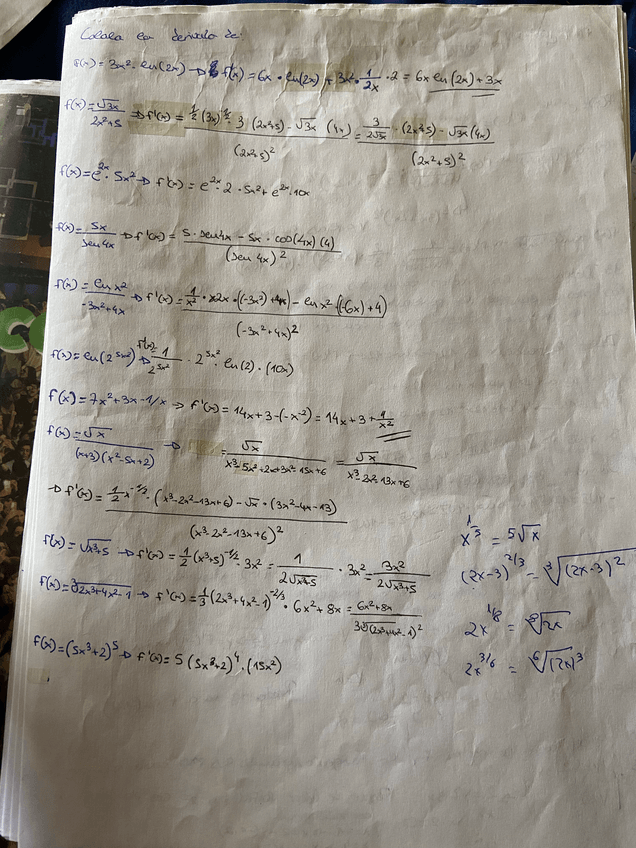 Calcula la derivada de:
f(x) = 3x² · ln(2x) → f'(x) = 6x · ln(2x) + 3x² · 1/2x · 2 = 6x ln(2x) + 3x
f(x) = √3x / 2x²+5 → f'(x) = ½ (3x)^-½ · 3 (2x²+5) - √3x (4x) / (2x²+5)² = 3/2√3x · (2x²+5) - √3x (4x) / (2x²+5)²
f(x) = e^2x · 5x² → f'(x) = e^2x · 2 · 5x² + e^2x · 10x
f(x) = 5x / sen 4x → f'(x) = 5 · sen 4x - 5x · cos(4x) (4) / (sen 4x)²
f(x) = ln x² / -3x²+4x → f'(x) = 1/x² · 2x · (-3x²) + 4x) - ln x² (-6x) + 4) / (-3x²+4x)²
f(x) = ln(2^5x²) → f'(x) = 1/2^5x² · 2^5x² · ln(2) · (10x)
f(x) = 7x² + 3x - 1/x → f'(x) = 14x + 3 - (-x^-2) = 14x + 3 + 1/x²
f(x) = √x / (x+3)(x²-5x+2) → = √x / x³-5x²+2x+3x²-15x+6 = √x / x³-2x²-13x+6
→ f'(x) = ½ x^-½ · (x³-2x²-13x+6) - √x · (3x²-4x-13) / (x³-2x²-13x+6)²
f(x) = √x³+5 → f'(x) = ½ (x³+5)^-½ · 3x² = 1 / 2√x³+5 · 3x² = 3x² / 2√x³+5
f(x) = ³√2x³+4x²-1 → f'(x) = 1/3 (2x³+4x²-1)^-2/3 · 6x²+8x = 6x²+8x / 3³√(2x³+4x²-1)²
f(x) = (5x³+2)^5 → f'(x) = 5 (5x³+2)^4 · (15x²)
x^1/5 = 5√x
(2x-3)^2/3 = ³√(2x-3)²
2x^1/8 = ⁸√2x
2x^3/6 = ⁶√(2x)³